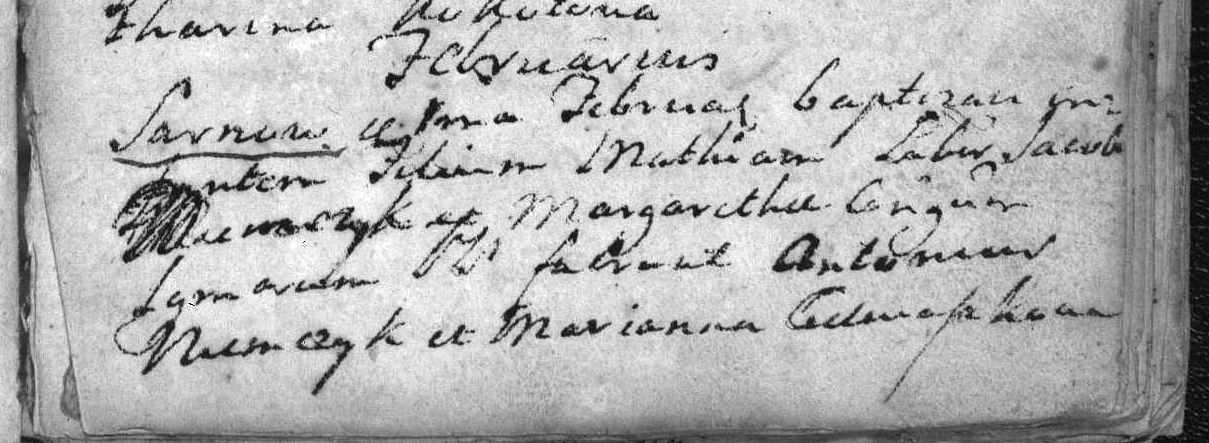 tharina Kokotowa
Februarius
Sarnow 1ma Februar baptizavi in=
fantem Filium Mathiam Labor Jacobi
Niemczyk et Margaretha Conjugum
L Patr fuerunt Antonius
Niemczyk et Marianna